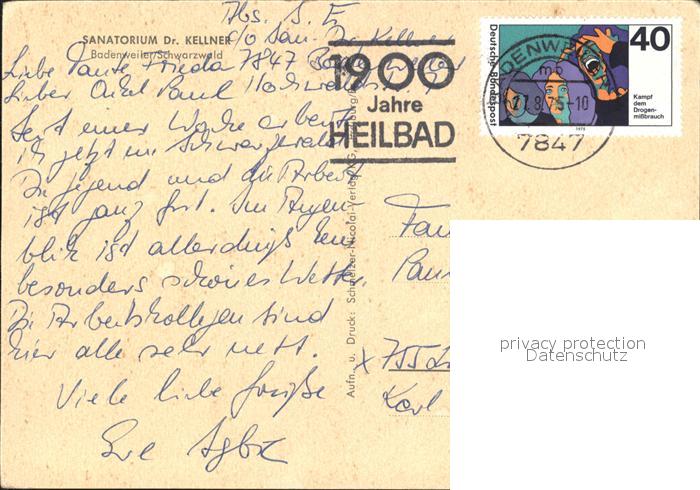 Abs. S. E.
c/o San. Dr. Kellner
7847 Badenweiler
SANATORIUM Dr. KELLNER
Badenweiler/Schwarzwald
Liebe Tante Frieda
Lieber Onkel Paul
Seit einer Woche arbeite
ich jetzt im Schwarzwald.
Die Jegend und die Arbeit
ist ganz gut. Im Augen-
blik ist allerdings kein
besonders schönes Wetter.
Die Arbeitskollegen sind
hier alle sehr nett.
Viele liebe Grüße
1900
Jahre
HEILBAD
Deutsche Bundespost
40
Kampf
dem
Drogen-
mißbrauch
1975
BADENWEILER
mb
7.8.75-10
7847
Aufn. u. Druck: Schweizer-Nicolai-Verlag KG,
Fam
Paul
x 755
Karl
privacy protection
Datenschutz